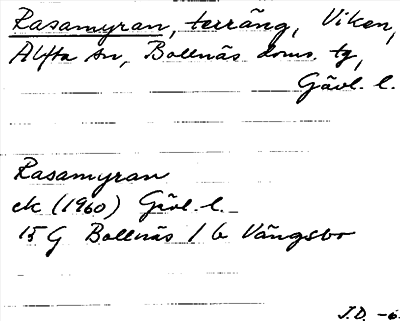 Rasamyran, terräng, Viken,
Alfta sn, Bollnäs doms. tg,
Gävl. l.
Rasamyran
ek (1960) Gävl. l.
15 G Bollnäs 1 b Vängsbo
J.D. -6